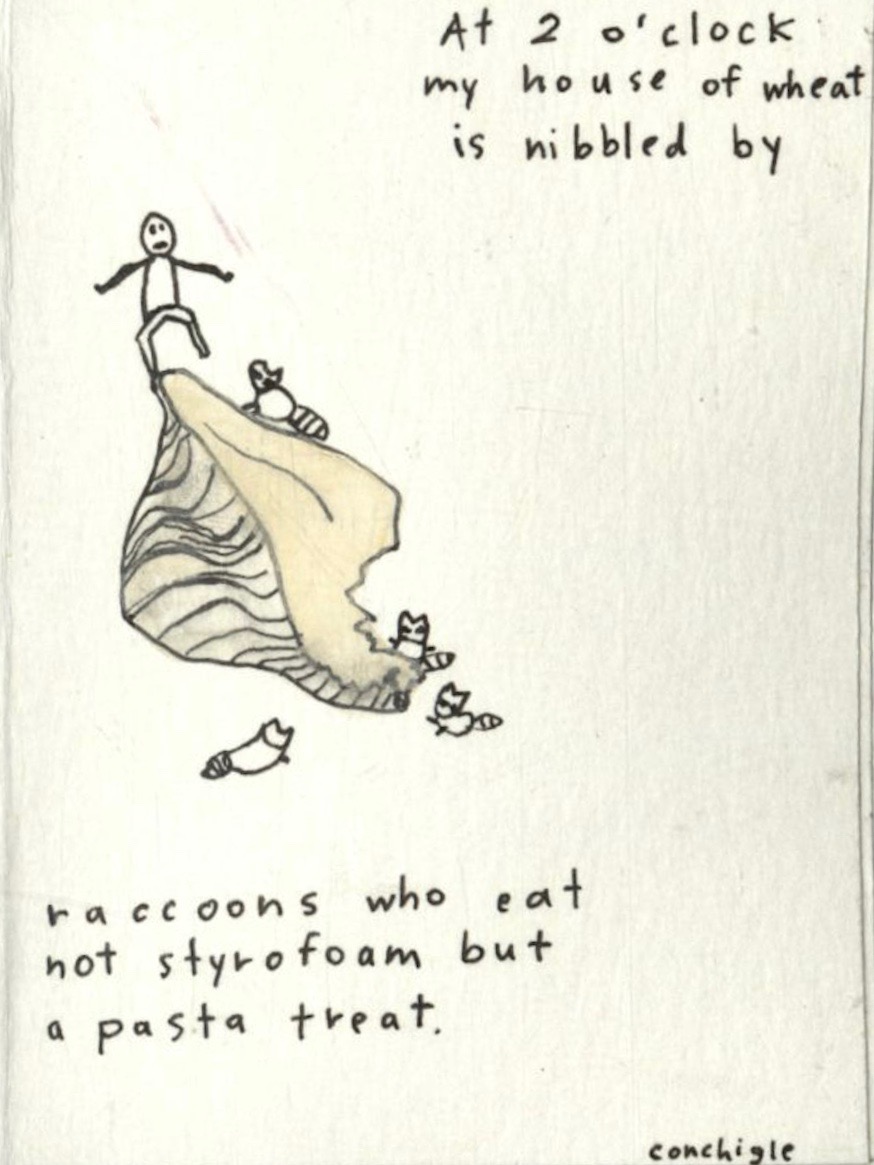 At 2 o'clock
my house of wheat
is nibbled by
raccoons who eat
not styrofoam but
a pasta treat.
conchigle